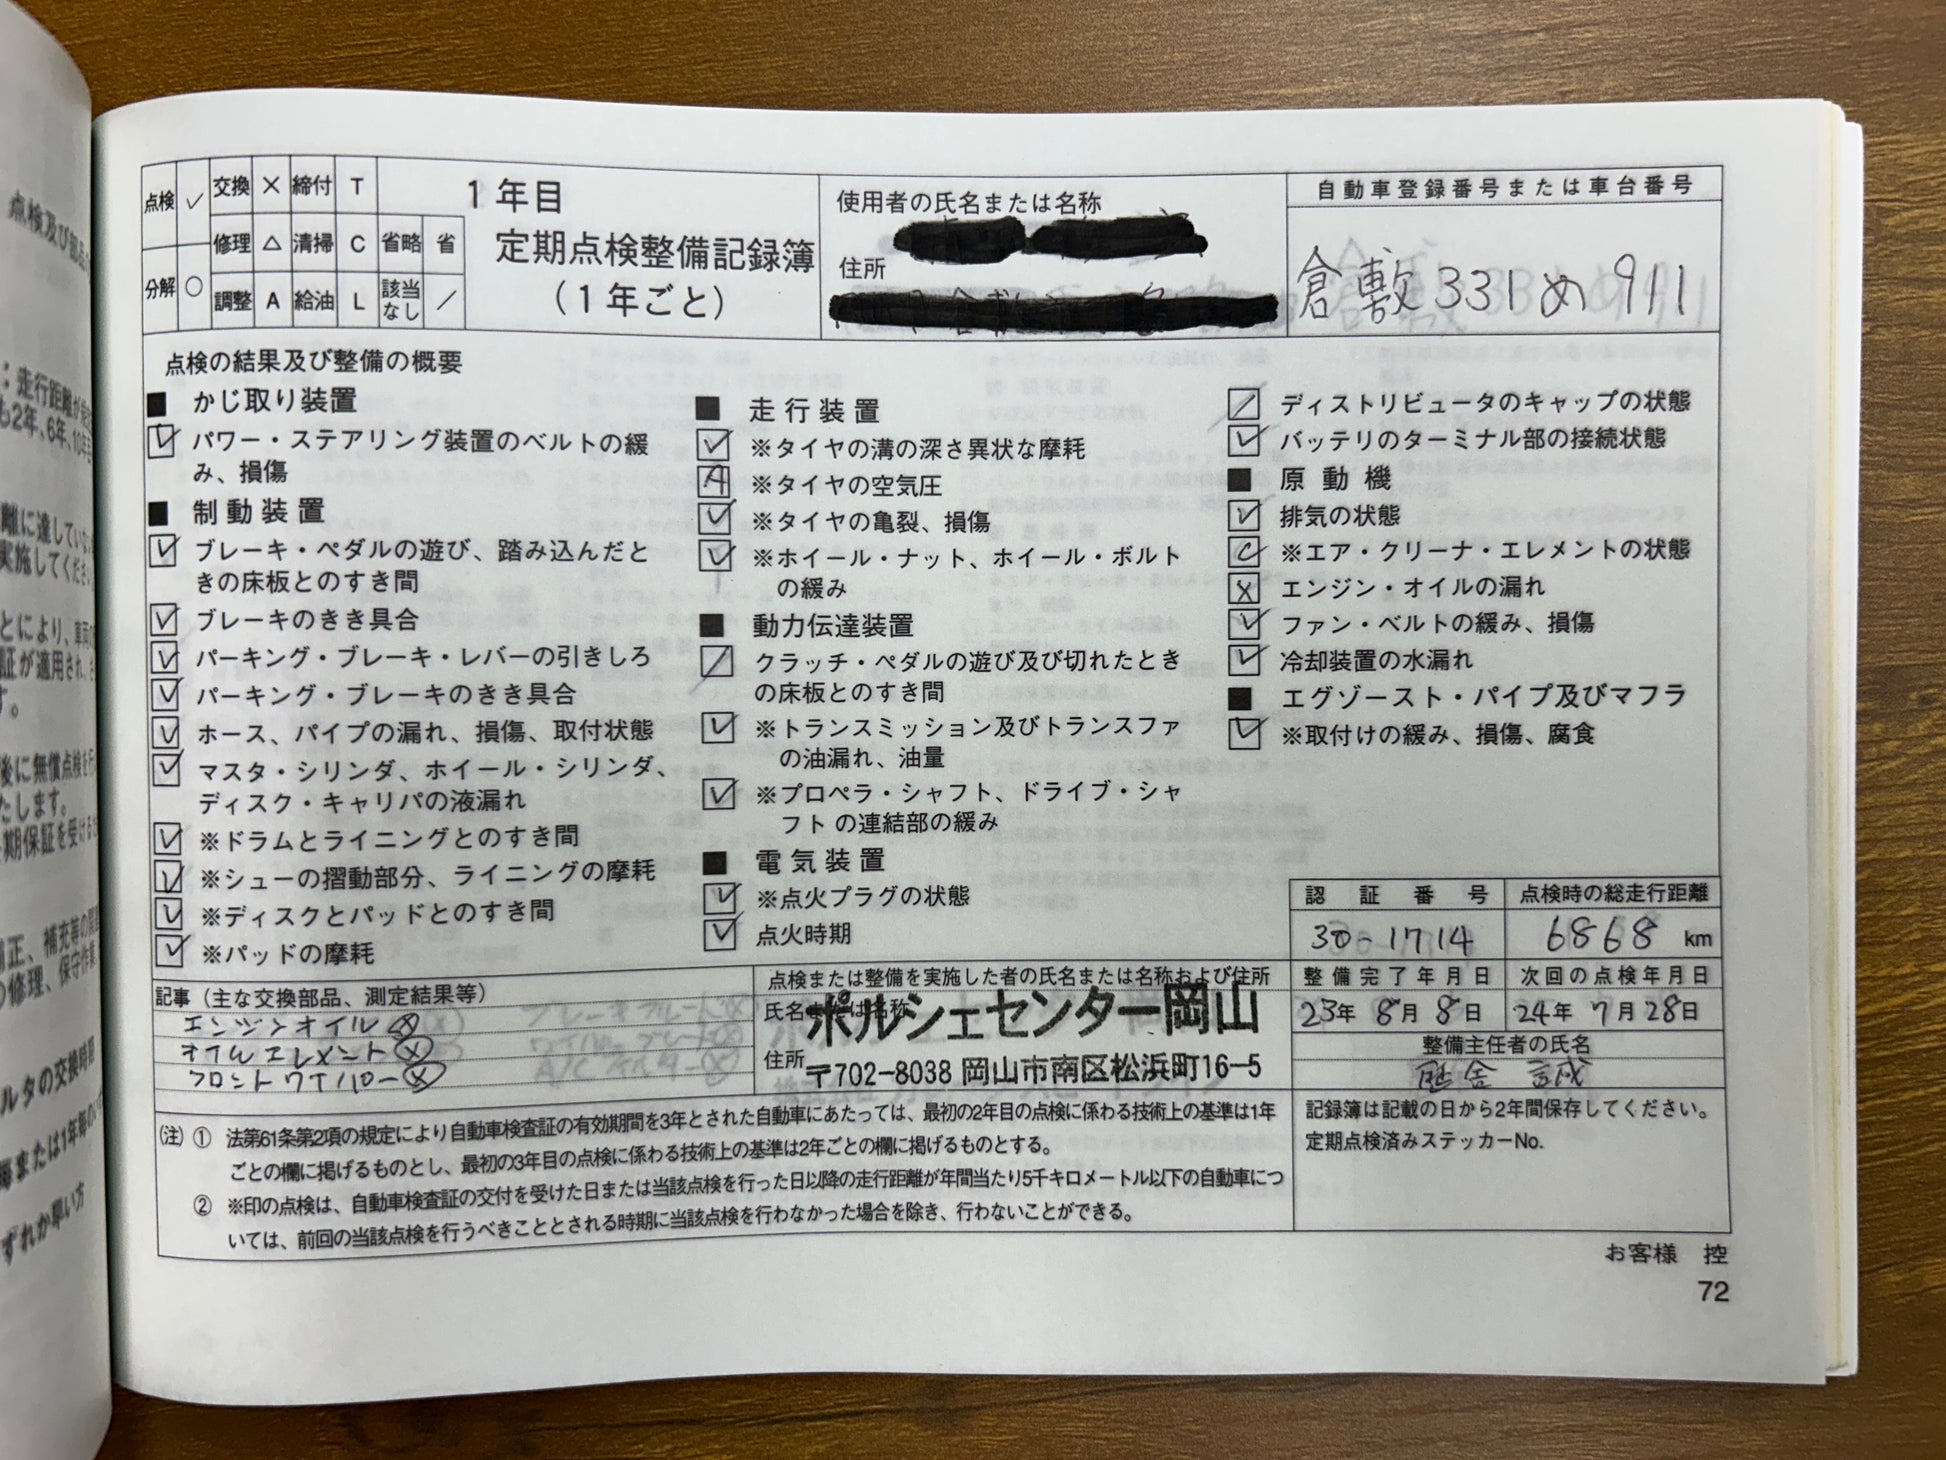 点検 ✓ 交換 × 締付 T
修理 △ 清掃 C 省略 省
分解 ○ 調整 A 給油 L 該当なし ／
1年目
定期点検整備記録簿
（1年ごと）
使用者の氏名または名称
住所
自動車登録番号または車台番号
倉敷 331 め 911
点検の結果及び整備の概要
■ かじ取り装置
✓ パワー・ステアリング装置のベルトの緩
み、損傷
■ 制動装置
✓ ブレーキ・ペダルの遊び、踏み込んだと
きの床板とのすき間
✓ ブレーキのきき具合
✓ パーキング・ブレーキ・レバーの引きしろ
✓ パーキング・ブレーキのきき具合
✓ ホース、パイプの漏れ、損傷、取付状態
✓ マスタ・シリンダ、ホイール・シリンダ、
ディスク・キャリパの液漏れ
✓ ※ドラムとライニングとのすき間
✓ ※シューの摺動部分、ライニングの摩耗
✓ ※ディスクとパッドとのすき間
✓ ※パッドの摩耗
■ 走行装置
✓ ※タイヤの溝の深さ異状な摩耗
A ※タイヤの空気圧
✓ ※タイヤの亀裂、損傷
✓ ※ホイール・ナット、ホイール・ボルト
の緩み
■ 動力伝達装置
／ クラッチ・ペダルの遊び及び切れたとき
の床板とのすき間
✓ ※トランスミッション及びトランスファ
の油漏れ、油量
✓ ※プロペラ・シャフト、ドライブ・シャ
フト の連結部の緩み
■ 電気装置
✓ ※点火プラグの状態
✓ 点火時期
／ ディストリビュータのキャップの状態
✓ バッテリのターミナル部の接続状態
■ 原動機
✓ 排気の状態
C ※エア・クリーナ・エレメントの状態
× エンジン・オイルの漏れ
✓ ファン・ベルトの緩み、損傷
✓ 冷却装置の水漏れ
■ エグゾースト・パイプ及びマフラ
✓ ※取付けの緩み、損傷、腐食
認証番号
30-1714
点検時の総走行距離
6868 km
記事（主な交換部品、測定結果等）
エンジンオイル ⓧ
オイルエレメント ⓧ
フロントワイパー ⓧ
点検または整備を実施した者の氏名または名称および住所
氏名または名称
ポルシェセンター岡山
住所
〒702-8038 岡山市南区松浜町16-5
整備完了年月日
23年 8月 8日
次回の点検年月日
24年 7月 28日
整備主任者の氏名
（注）① 法第61条第2項の規定により自動車検査証の有効期間を3年とされた自動車にあたっては、最初の2年目の点検に係わる技術上の基準は1年
ごとの欄に掲げるものとし、最初の3年目の点検に係わる技術上の基準は2年ごとの欄に掲げるものとする。
② ※印の点検は、自動車検査証の交付を受けた日または当該点検を行った日以降の走行距離が年間当たり5千キロメートル以下の自動車につ
いては、前回の当該点検を行うべきこととされる時期に当該点検を行わなかった場合を除き、行わないことができる。
記録簿は記載の日から2年間保存してください。
定期点検済みステッカーNo.
お客様 控
72